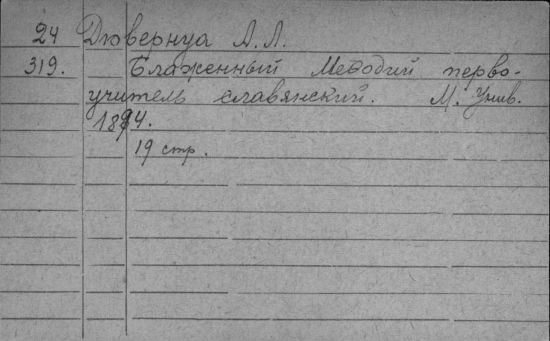 24 Дювернуа А.Л.
319. Блаженный Меѳодий перво-
учитель славянский. М. Унив.
1894.
19 стр.